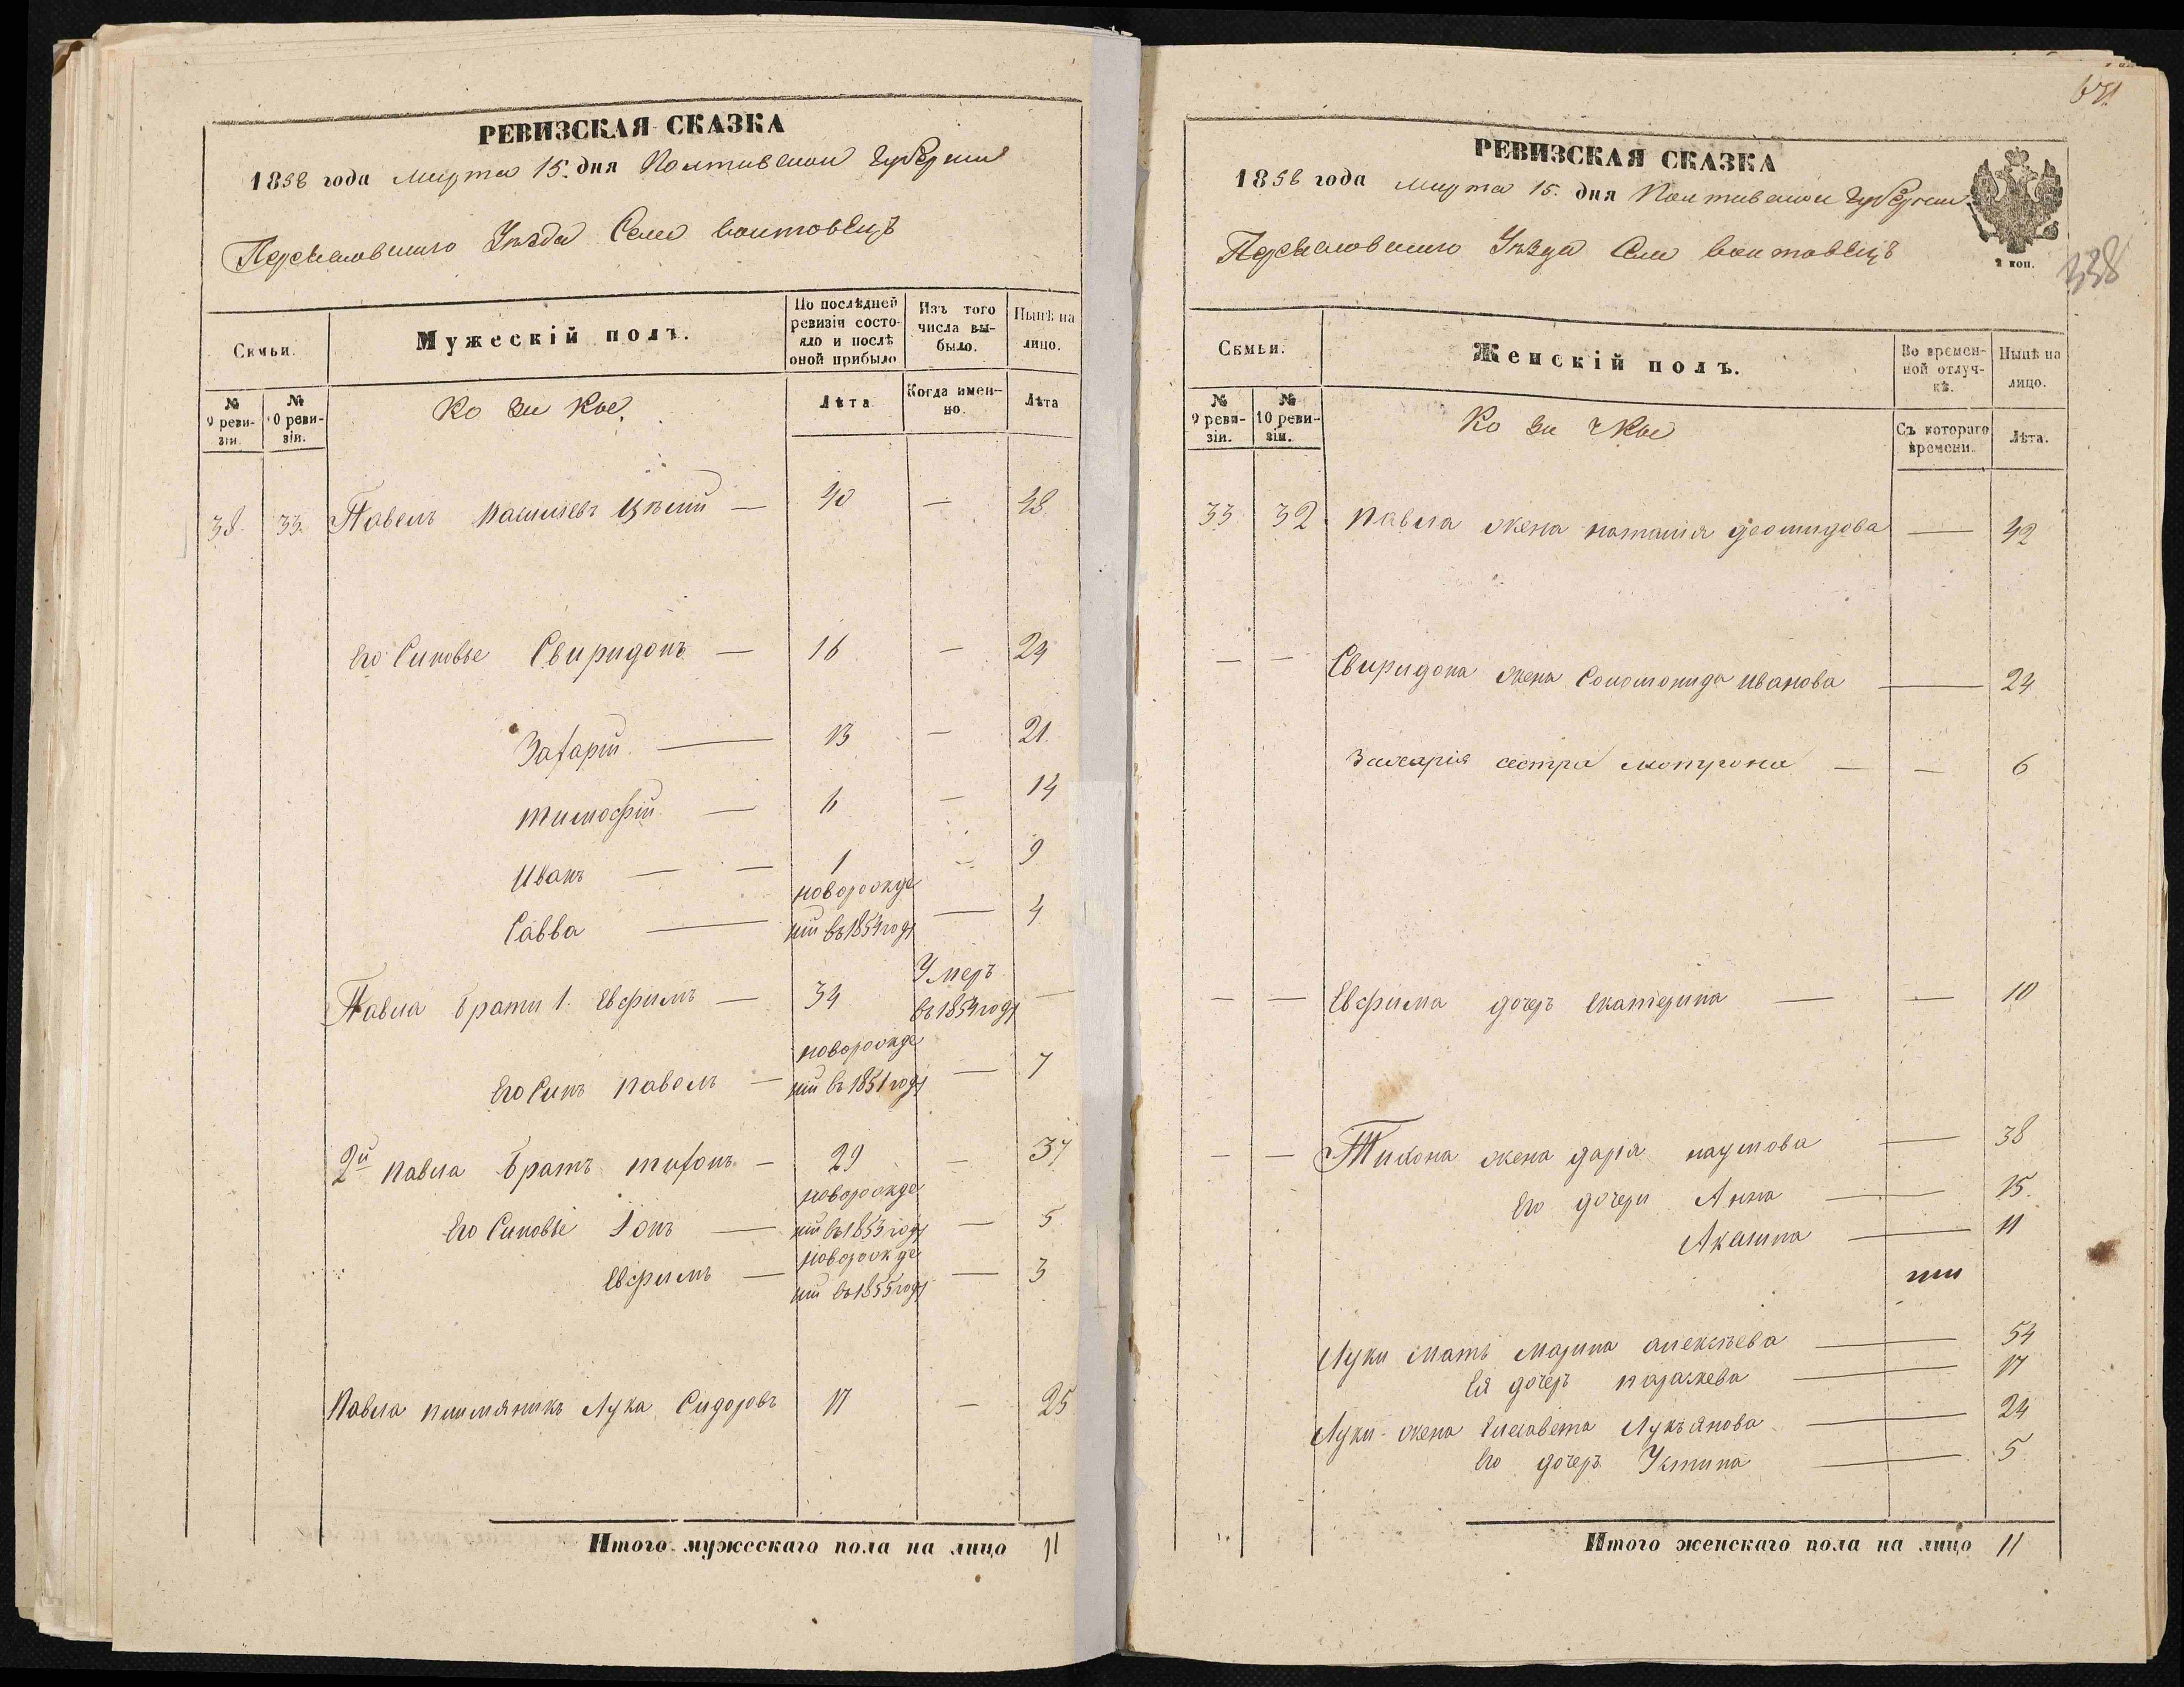 РЕВИЗСКАЯ СКАЗКА
1858 года Марта 15. дня Полтавской Губернии
Переяславского Уезда Села Войтовецъ
Семьи.
Мужескій полъ.
По послѣдней ревизіи состояло и послѣ оной прибыло
Изъ того числа выбыло.
Нынѣ на лицо.
№ 9 ревизіи.
№ 10 ревизіи.
Козаки
Лѣта
Когда именно.
Лѣта
38. 33. Павелъ — 40 — 48
Его Синовье Свиридонъ — 16 — 24
Захарій — 13 — 21
тимофій — 6 — 14
Иванъ — — 1 — 9
Савва — новорожденій въ 1854 году — 4
Павла брати 1. Евфимъ — 34 Умеръ въ 1854 году —
Его Синъ павелъ — новорожденій въ 1851 году — 7
2й павла братъ тихонъ — 29 — 37
Его Синовье Іонъ — новорожденій въ 1853 году — 5
Евфимъ — новорожденій въ 1855 году — 3
Павла племяникъ Лука Сидоровъ 17 — 25
Итого мужескаго пола на лицо 11
РЕВИЗСКАЯ СКАЗКА
1858 года Марта 15. дня Полтавской Губернии
Переяславского Уезда Села Войтовецъ
2 коп.
338
Семьи.
Женскій полъ.
Во временной отлучкѣ.
Нынѣ на лицо.
№ 9 ревизіи.
№ 10 ревизіи.
Съ котораго времени.
Лѣта.
33 32 Павла жена наталія — 42
— — Свиридона жена Соломонида иванова — 24
Захарія сестра мотрона — — 6
— — Евфима дочеръ екатерина — — 10
— — Тихона жена дарія наумова — 38
Его дочери Анна — 15.
Акилина — 11
Луки мать Марина алексѣева — 54
Ея дочеръ параскева — 17
Луки жена Елисавета Лукъянова — 24
Его дочеръ Устина — 5
Итого женскаго пола на лицо 11